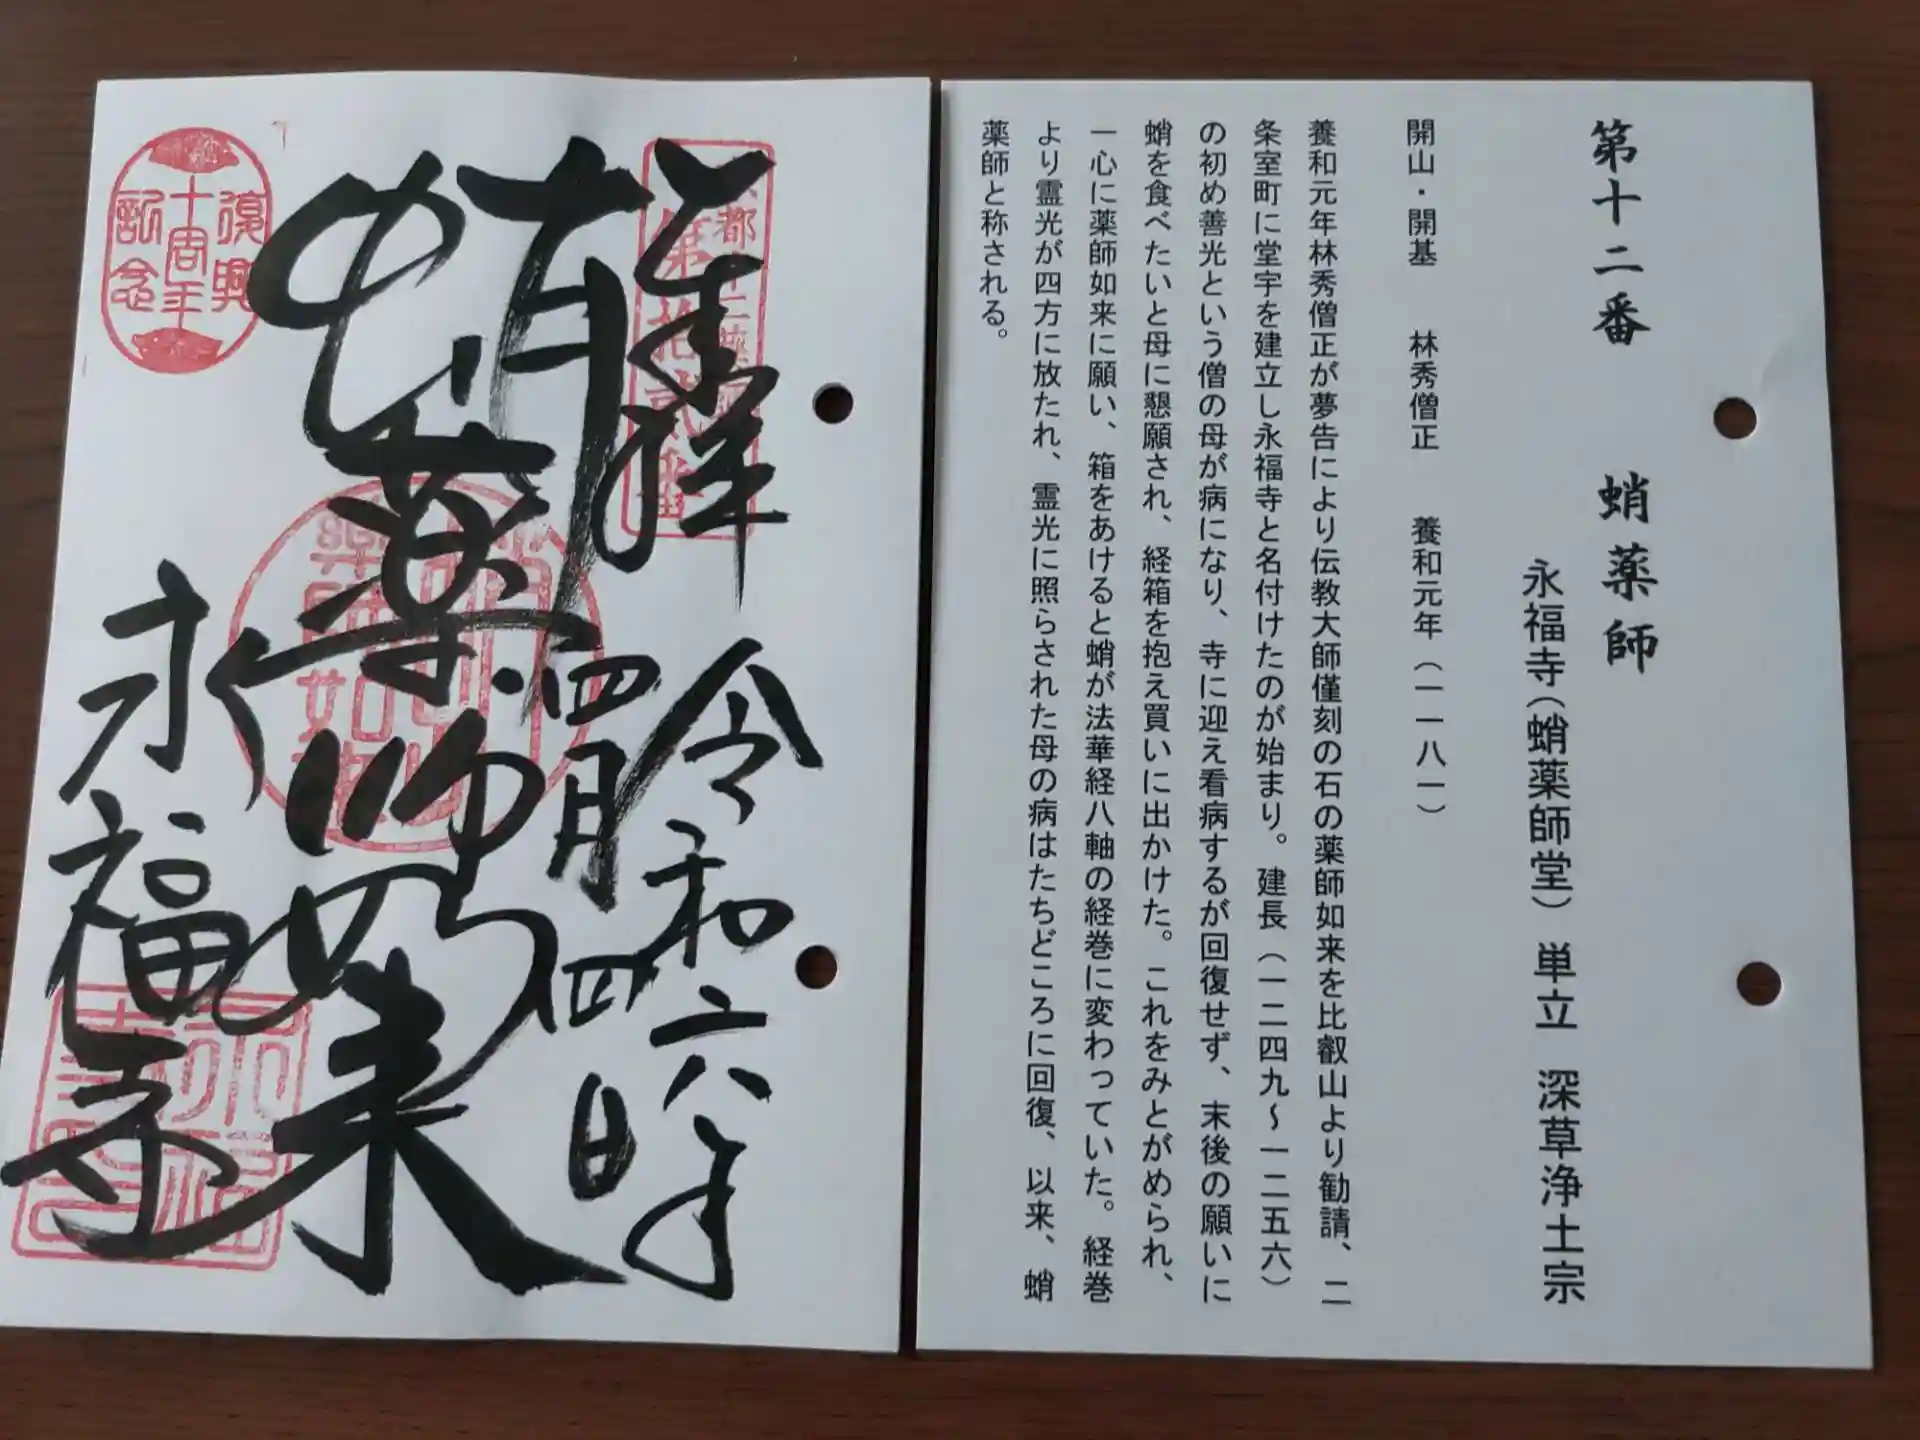 第十二番　蛸薬師
永福寺（蛸薬師堂）単立　深草浄土宗
開山・開基　林秀僧正　養和元年（一一八一）
養和元年林秀僧正が夢告により伝教大師僅刻の石の薬師如来を比叡山より勧請、二
条室町に堂宇を建立し永福寺と名付けたのが始まり。建長（一二四九～一二五六）
の初め善光という僧の母が病になり、寺に迎え看病するが回復せず、末後の願いに
蛸を食べたいと母に懇願され、経箱を抱え買いに出かけた。これをみとがめられ、
一心に薬師如来に願い、箱をあけると蛸が法華経八軸の経巻に変わっていた。経巻
より霊光が四方に放たれ、霊光に照らされた母の病はたちどころに回復、以来、蛸
薬師と称される。
奉拝
令和六年
四月四日
蛸薬師如来
永福寺
復興
十周年
記念
第拾弐番